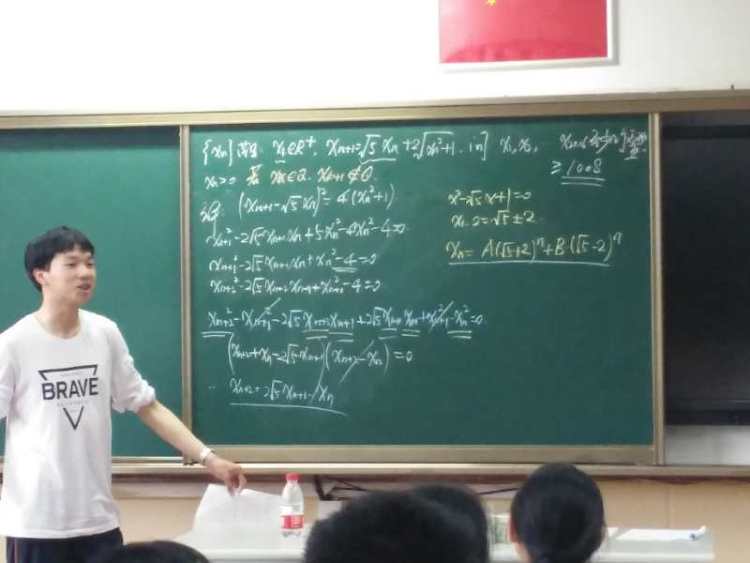 {xₙ}满足 x₁∈R⁺, xₙ₊₁=√5 xₙ+2√(xₙ²+1). in] x₁, x₂,
≥1008
xₙ>0 xₙ∈Q. xₙ₊₁∉Q.
(xₙ₊₁-√5 xₙ)²=4(xₙ²+1)
xₙ₊₁²-2√5 xₙ₊₁xₙ+5xₙ²-4xₙ²-4=0
xₙ₊₁²-2√5 xₙ₊₁xₙ+xₙ²-4=0
xₙ₊₂²-2√5 xₙ₊₂xₙ₊₁+xₙ₊₁²-4=0
xₙ₊₂²-xₙ₊₁²-2√5 xₙ₊₂xₙ₊₁+2√5 xₙ₊₁xₙ+xₙ₊₁²-xₙ²=0
(xₙ₊₂+xₙ-2√5 xₙ₊₁)(xₙ₊₂-xₙ)=0
xₙ₊₂=2√5 xₙ₊₁-xₙ
x²-√5x+1=0
x₁.₂=√5±2
xₙ=A(√5+2)ⁿ+B(√5-2)ⁿ
BRAVE